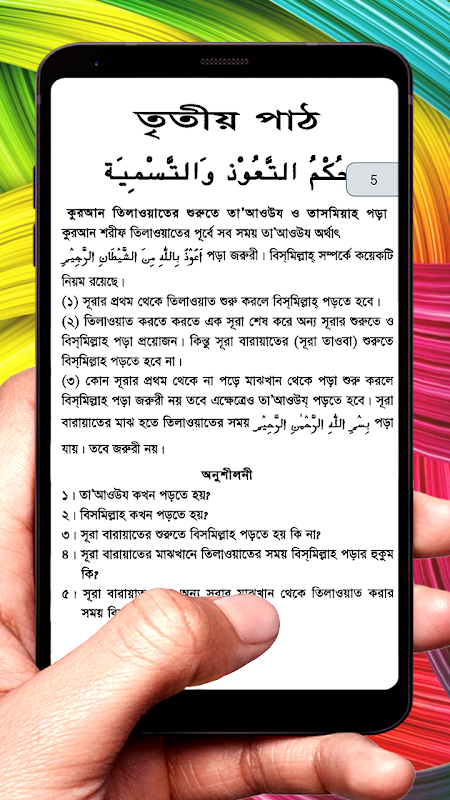 তৃতীয় পাঠ
حُكْمُ التَّعُوْذ وَالتَّسْمِيَة
5
কুরআন তিলাওয়াতের শুরুতে তা'আওউয ও তাসমিয়াহ পড়া
কুরআন শরীফ তিলাওয়াতের পূর্বে সব সময় তা'আওউয অর্থাৎ
اَعُوْذُ بِاللّٰهِ مِنَ الشَّيْطَانِ الرَّجِيْمِ পড়া জরুরী। বিস্‌মিল্লাহ্ সম্পর্কে কয়েকটি
নিয়ম রয়েছে।
(১) সূরার প্রথম থেকে তিলাওয়াত শুরু করলে বিস্‌মিল্লাহ্ পড়তে হবে।
(২) তিলাওয়াত করতে করতে এক সূরা শেষ করে অন্য সূরার শুরুতে ও
বিস্‌মিল্লাহ পড়া প্রয়োজন। কিন্তু সূরা বারায়াতের (সূরা তাওবা) শুরুতে
বিস্‌মিল্লাহ পড়তে হবে না।
(৩) কোন সূরার প্রথম থেকে না পড়ে মাঝখান থেকে পড়া শুরু করলে
বিস্‌মিল্লাহ পড়া জরুরী নয় তবে এক্ষেত্রেও তা'আওউয্ পড়তে হবে। সূরা
বারায়াতের মাঝ হতে তিলাওয়াতের সময় بِسْمِ اللهِ الرَّحْمٰنِ الرَّحِيْمِ পড়া
যায়। তবে জরুরী নয়।
অনুশীলনী
১। তা'আওউয কখন পড়তে হয়?
২। বিসমিল্লাহ কখন পড়তে হয়?
৩। সূরা বারায়াতের শুরুতে বিসমিল্লাহ পড়তে হয় কি না?
৪। সূরা বারায়াতের মাঝখানে তিলাওয়াতের সময় বিস্‌মিল্লাহ পড়ার হুকুম
কি?
৫। সূরা বারায়াত অন্য সূরার মাঝখান থেকে তিলাওয়াত করার
সময়